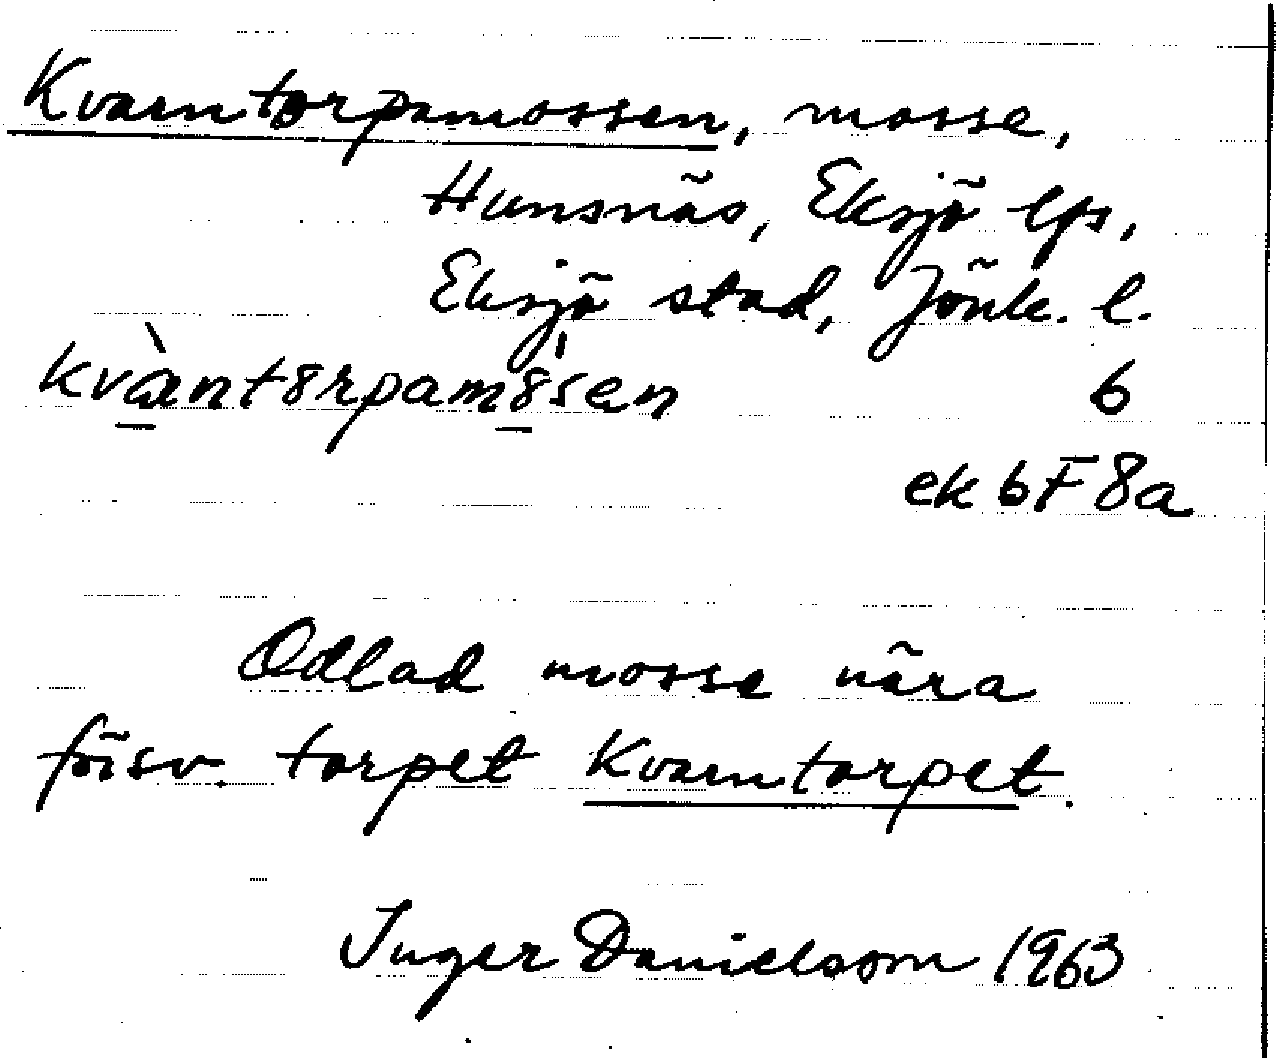 Kvarntorpamossen, mosse,
Hunsnäs, Eksjö lfs,
Eksjö stad, Jönk. l.
kvàntȣrpamȣ̀sen 6
ek 6F 8a
Odlad mosse nära
försv. torpet Kvarntorpet.
Inger Danielsson 1963